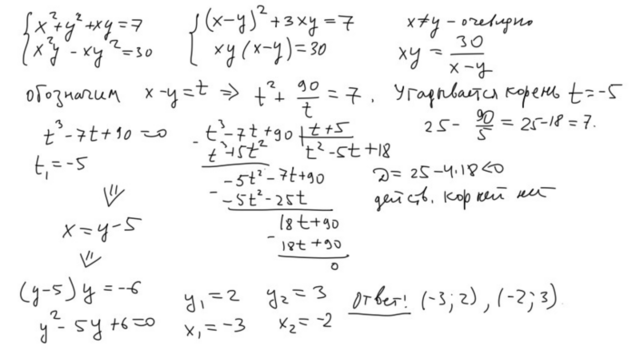 { x²+y²+xy=7
x²y-xy²=30
{ (x-y)²+3xy=7
xy(x-y)=30
x≠y - очевидно
xy = 30/(x-y)
обозначим x-y=t ⇒ t² + 90/t = 7. Угадывается корень t=-5
25 - 90/5 = 25-18 = 7.
t³-7t+90=0
t₁=-5
⇓
x=y-5
⇓
(y-5)y=-6
y²-5y+6=0
- t³-7t+90 | t+5
t³+5t² t²-5t+18
-5t²-7t+90
- -5t²-25t
18t+90
- 18t+90
0
D=25-4·18<0
действ. корней нет
y₁=2 y₂=3
x₁=-3 x₂=-2
Ответ: (-3;2), (-2;3)